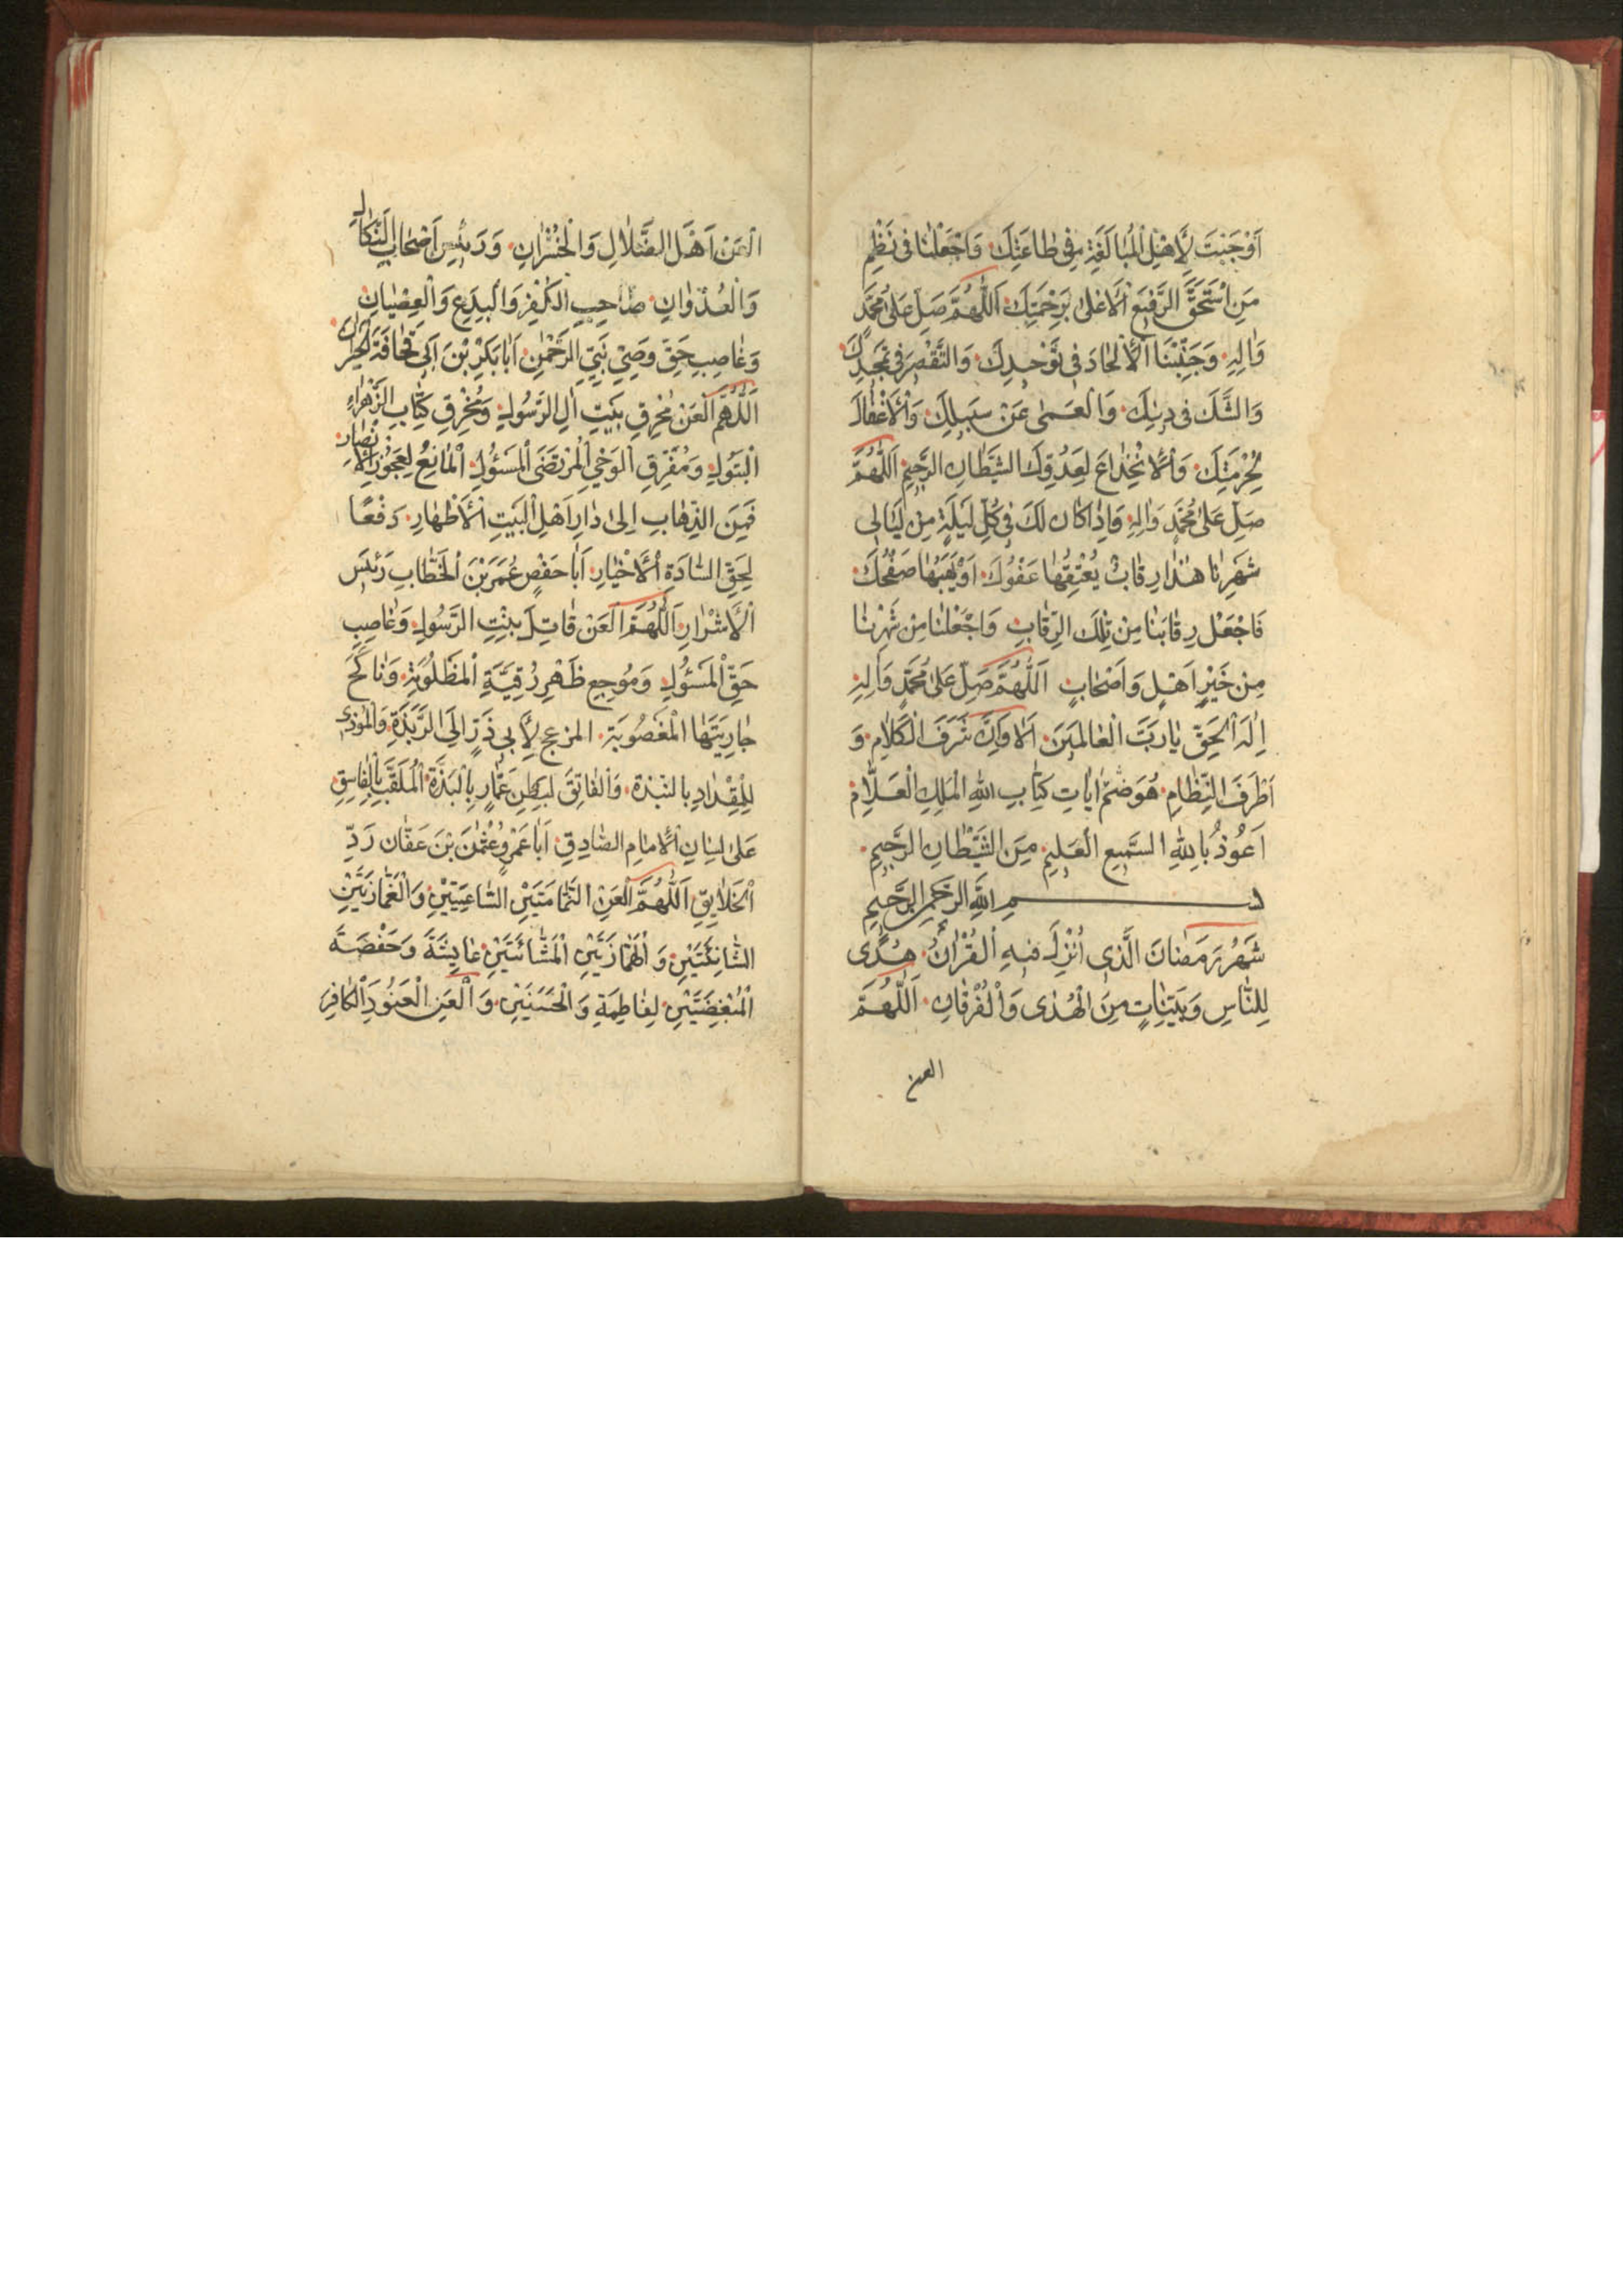 اَوْجَبْتَ لِاَهْلِ الْمُبَالَغَةِ فِى طَاعَتِكَ وَاجْعَلْنَا فى نَظْمِ
مَنِ اسْتَحَقَّ الرَّفيعَ الْاَعْلىٰ بِرَحْمَتِكَ اَللّٰهُمَّ صَلِّ عَلىٰ مُحَمَّدٍ
وَاٰلِهِ وَجَنِّبْنَا الْاِلْحَادَ فى تَوْحيدِكَ وَالتَّقْصيرَ فى تَمْجيدِكَ
وَالشَّكَّ فى دينِكَ وَالْعَمىٰ عَنْ سَبيلِكَ وَالْاِغْفَالَ
لِحُرْمَتِكَ وَالْاِنْخِدَاعَ لِعَدُوِّكَ الشَّيْطَانِ الرَّجيمِ اَللّٰهُمَّ
صَلِّ عَلىٰ مُحَمَّدٍ وَاٰلِهِ وَاِذَا كَانَ لَكَ فى كُلِّ لَيْلَةٍ مِنْ لَيَالى
شَهْرِنَا هٰذَا رِقَابٌ يُعْتِقُهَا عَفْوُكَ اَوْ يَهَبُهَا صَفْحُكَ
فَاجْعَلْ رِقَابَنَا مِنْ تِلْكَ الرِّقَابِ وَاجْعَلْنَا مِنْ شَهْرِنَا
مِنْ خَيْرِ اَهْلٍ وَاَصْحَابٍ اَللّٰهُمَّ صَلِّ عَلىٰ مُحَمَّدٍ وَاٰلِهِ
اِلٰهَ الْحَقِّ يَا رَبَّ الْعَالَمينَ اَلَا وَاِنَّ شَرَفَ الْكَلَامِ وَ
اَظْرَفَ النِّظَامِ هُوَ ضَمُّ اٰيَاتِ كِتَابِ اللهِ الْمَلِكِ الْعَلَّامِ
اَعُوذُ بِاللهِ السَّميعِ الْعَليمِ مِنَ الشَّيْطَانِ الرَّجيمِ
بسم اللهِ الرَّحْمٰنِ الرَّحيمِ
شَهْرُ رَمَضَانَ الَّذى اُنْزِلَ فيهِ الْقُرْاٰنُ هُدًى
لِلنَّاسِ وَبَيِّنَاتٍ مِنَ الْهُدٰى وَالْفُرْقَانِ اَللّٰهُمَّ
العن
الْعَنْ اَهْلَ الضَّلَالِ وَالْخُسْرَانِ وَرَئيسَ اَصْحَابِ النَّكَالِ
وَالْعُدْوَانِ صَاحِبِ الْكُفْرِ وَالْبِدَعِ وَالْعِصْيَانِ
وَغَاصِبِ حَقِّ وَصِيِّ نَبِيِّ الرَّحْمٰنِ اَبَا بَكْرِ بْنَ اَبى قُحَافَةَ
اَللّٰهُمَّ الْعَنْ مُحْرِقِ بَيْتِ اٰلِ الرَّسُولِ وَمُخْرِقِ كِتَابِ الزَّهْرَاءِ
الْبَتُولِ وَمُفَرِّقِ الْوَحْيِ الْمُرْتَضَى الْمَسْؤُلِ الْمَانِعُ لِعَجُوزِ الْاَنْصَارِ
فَمِنَ الذِّهَابِ اِلىٰ دَارِ اَهْلِ الْبَيْتِ الْاَطْهَارِ دَفْعًا
لِحَقِّ السَّادَةِ الْاَخْيَارِ اَبَا حَفْصٍ عُمَرَ بْنَ الْخَطَّابِ رَئيسَ
الْاَشْرَارِ اَللّٰهُمَّ الْعَنْ قَاتِلَ بِنْتِ الرَّسُولِ وَغَاصِبِ
حَقِّ الْمَسْؤُلِ وَمُوجِعِ ظَهْرِ رُقِيَّةِ الْمَظْلُومَةِ وَنَاكِحَ
جَارِيَتِهَا الْمَغْصُوبَةِ المزعج لِاَبى ذَرٍّ اِلَى الرَّبَذَةِ وَالْمُوذى
لِلْمِقْدَادِ بالنبذة وَالْفَاتِقَ لِبَطْنِ عَمَّارٍ بِالْبَذَّةِ الْمُلَقَّبَ بِالْفَاسِقِ
عَلىٰ لِسَانِ الْاِمَامِ الصَّادِقِ اَبَا عَمْرٍو عُثْمٰنَ بْنَ عَفَّانَ رَدِّ
الْخَلَايِقِ اَللّٰهُمَّ الْعَنِ النَّمَّامَتَيْنِ السَّاعِيَتَيْنِ وَالْغَمَّازَتَيْنِ
الشَّانِئَتَيْنِ وَالْهَمَّازَتَيْنِ الْمَشَّائَتَيْنِ عَايِشَةَ وَحَفْصَةَ
الْمُبْغِضَتَيْنِ لِفَاطِمَةِ وَالْحَسَنَيْنِ وَالْعَنِ الْعَنُودَ الْكَافِرَ